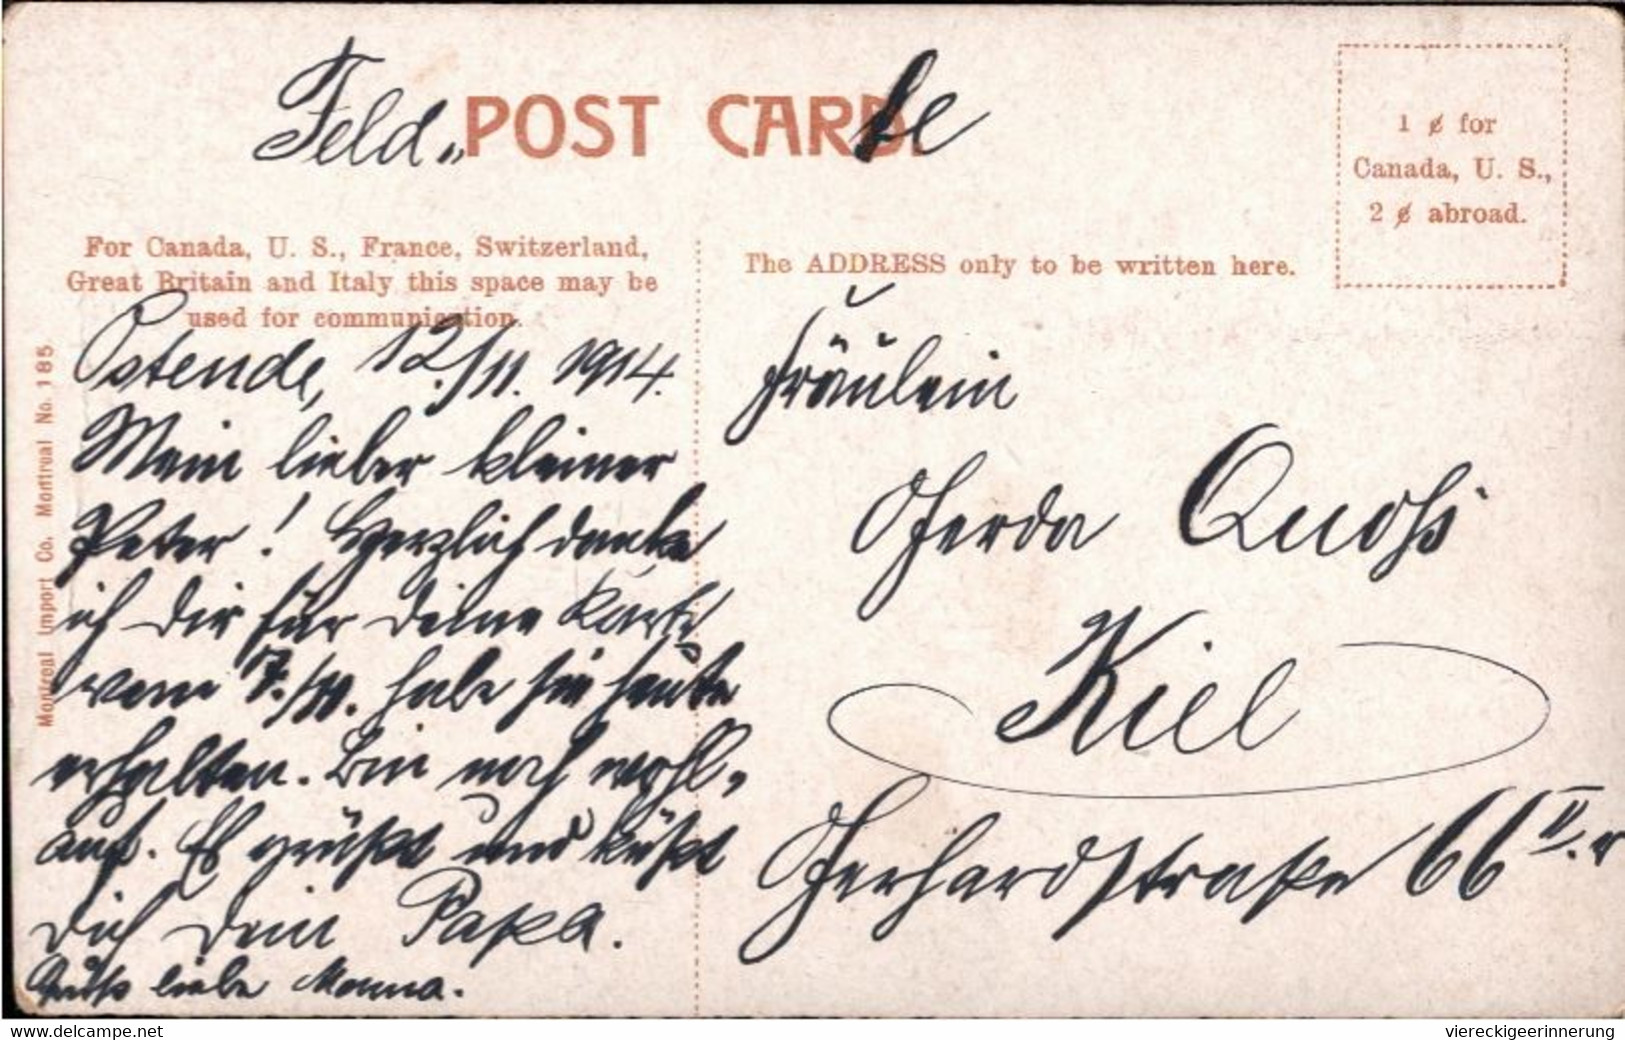 Feld „POST CARD te
1 ¢ for
Canada, U. S.,
2 ¢ abroad.
For Canada, U. S., France, Switzerland,
Great Britain and Italy this space may be
used for communication.
The ADDRESS only to be written here.
Montreal Import Co. Montreal No. 185
Ostende, 12./11. 1914.
Mein lieber kleiner
Peter! Herzlich danke
ich Dir für Deine Karte
vom 7./11. habe sie heute
erhalten. Bin noch wohl-
auf. Es grüßt und küßt
Dich Dein Papa.
Gruß liebe Mama.
Fräulein
Gerda
Kiel
Gerhardstraße 66 II. r
www.delcampe.net
viereckigeerinnerung